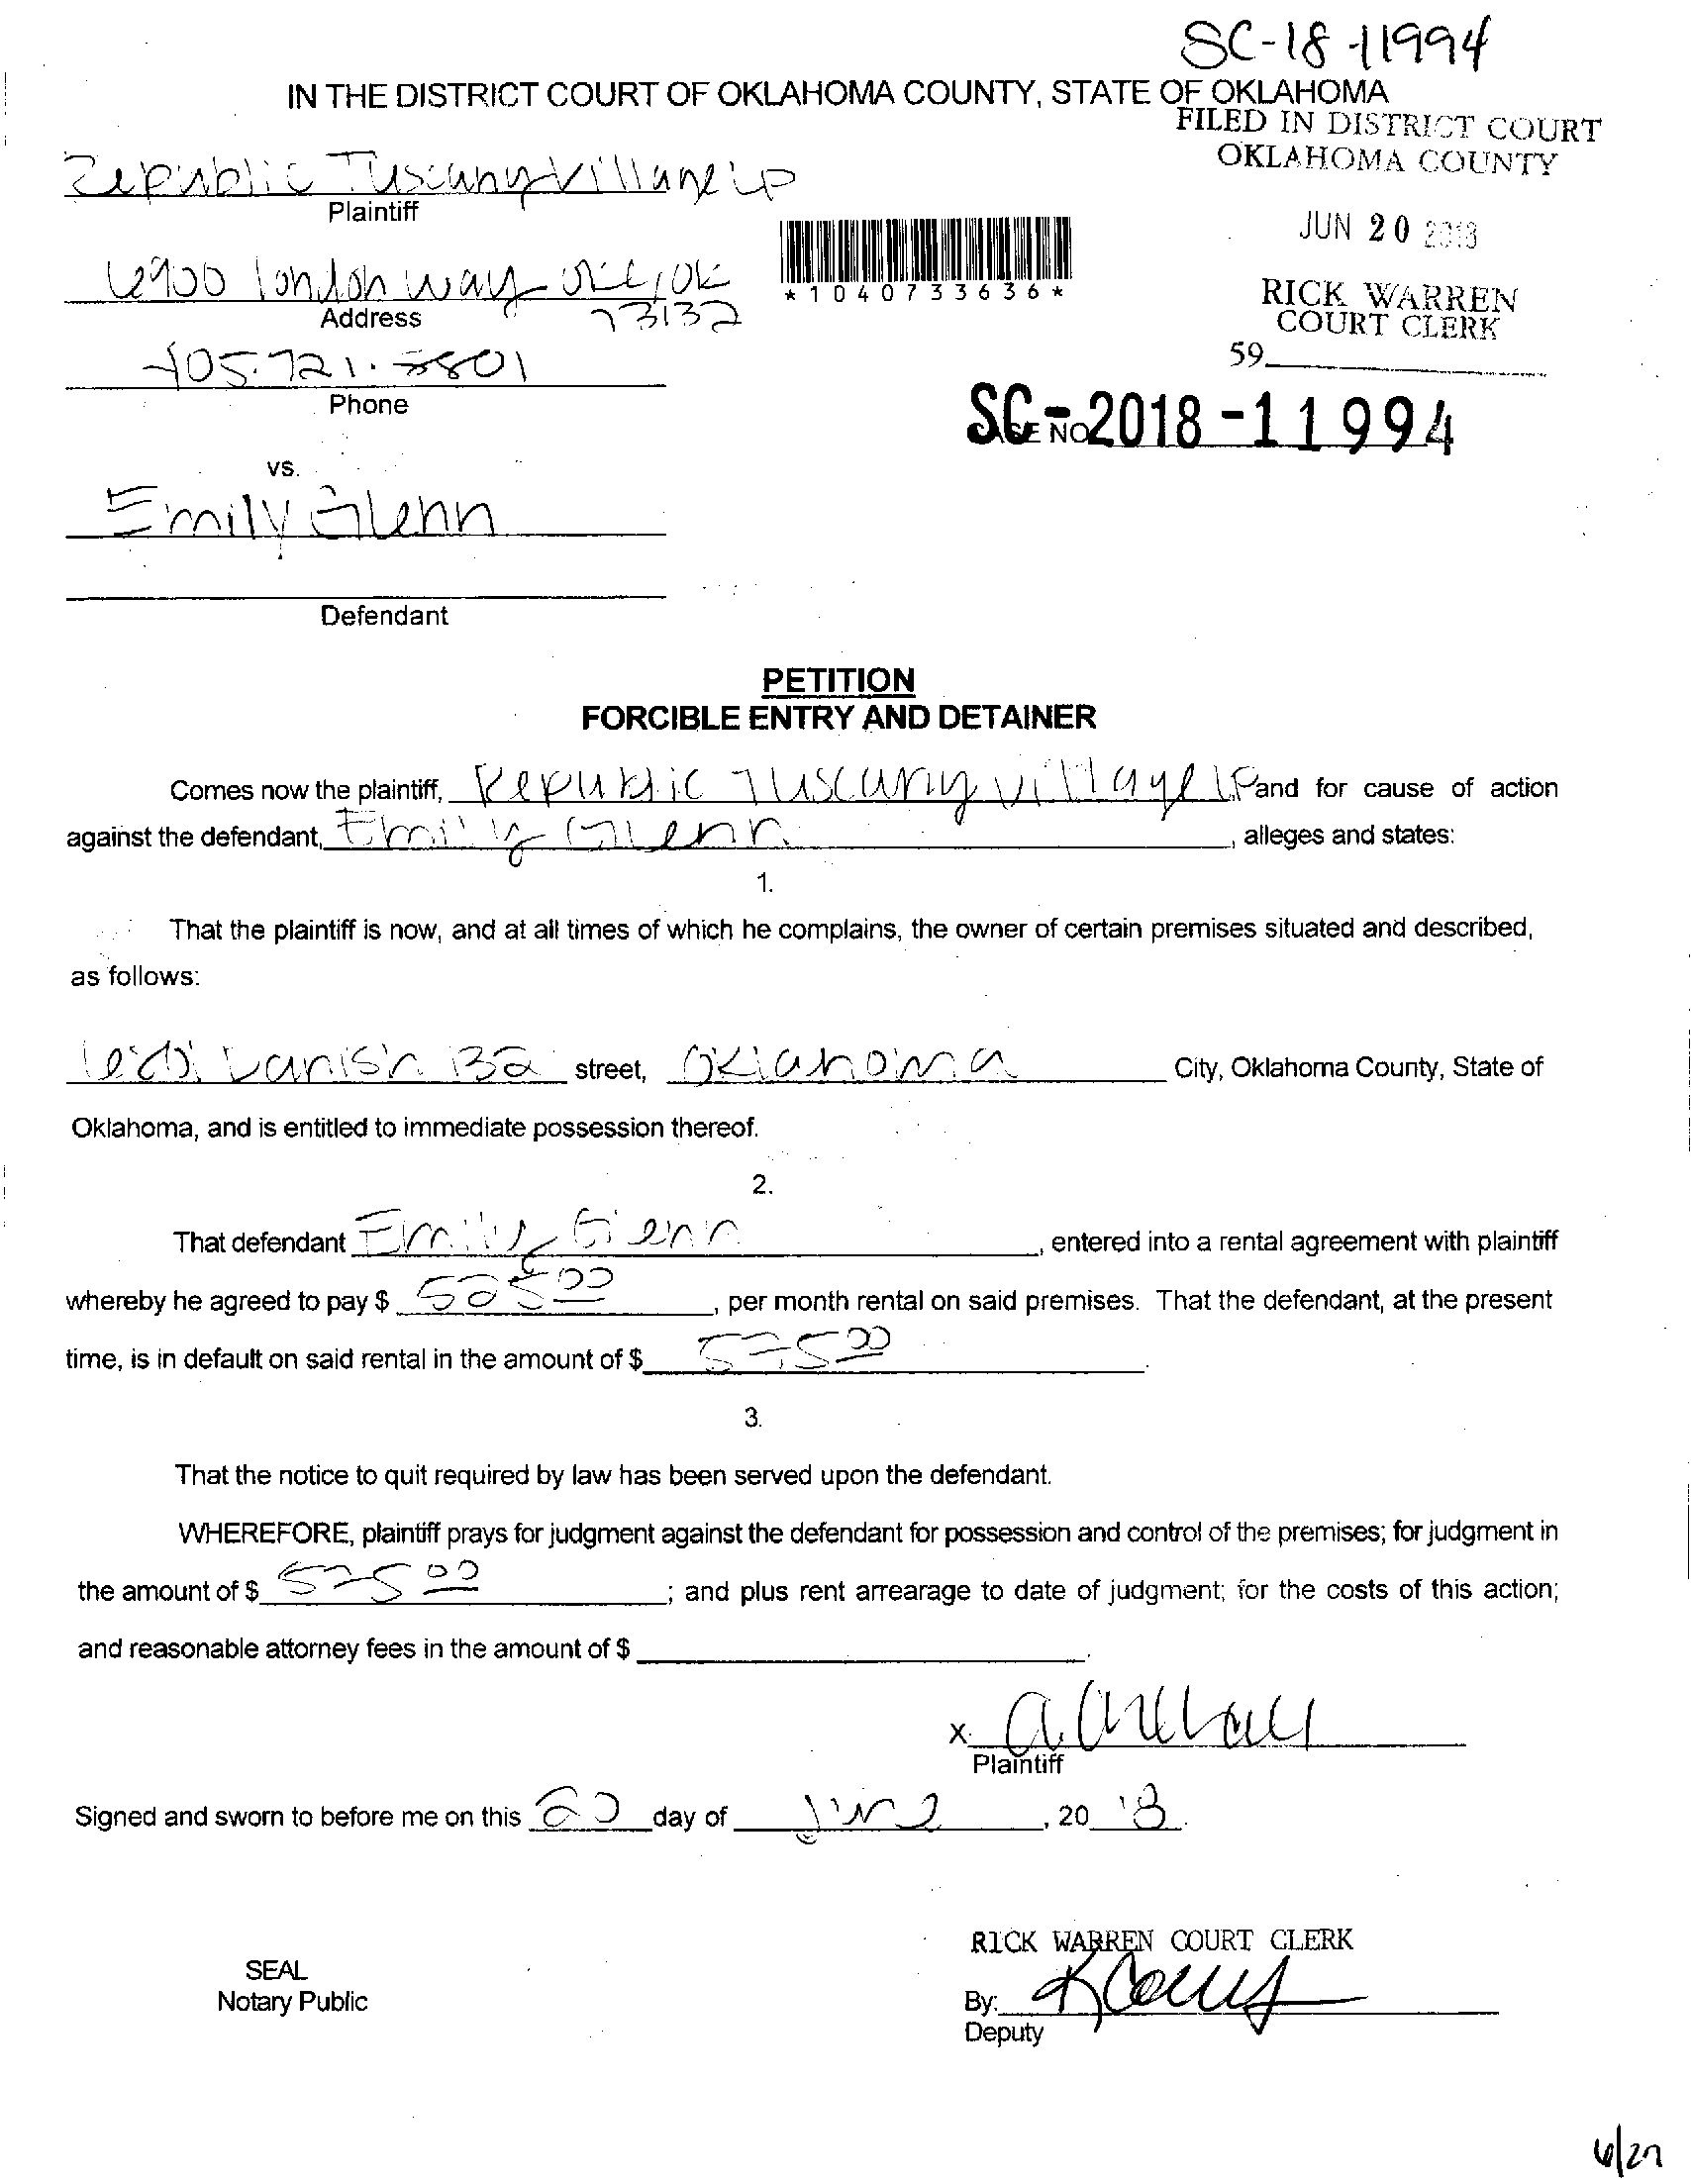 SC-18-11994
IN THE DISTRICT COURT OF OKLAHOMA COUNTY, STATE OF OKLAHOMA
FILED IN DISTRICT COURT
OKLAHOMA COUNTY
Republic Tuscany Village LP
Plaintiff
JUN 20 2018
6900 london way OKC, OK
73132
*1040733636*
Address
RICK WARREN
COURT CLERK
59
405.721.8801
Phone
SC-2018-11994
vs.
Emily Glenn
Defendant
PETITION
FORCIBLE ENTRY AND DETAINER
Comes now the plaintiff, Republic Tuscany Village LP and for cause of action
against the defendant, Emily Glenn, alleges and states:
1.
That the plaintiff is now, and at all times of which he complains, the owner of certain premises situated and described,
as follows:
street, Oklahoma City, Oklahoma County, State of
Oklahoma, and is entitled to immediate possession thereof.
2.
That defendant Emily Glenn, entered into a rental agreement with plaintiff
whereby he agreed to pay $ 525 00, per month rental on said premises. That the defendant, at the present
time, is in default on said rental in the amount of $ 575 00.
3.
That the notice to quit required by law has been served upon the defendant.
WHEREFORE, plaintiff prays for judgment against the defendant for possession and control of the premises; for judgment in
the amount of $ 575 00; and plus rent arrearage to date of judgment; for the costs of this action;
and reasonable attorney fees in the amount of $
X
Plaintiff
Signed and sworn to before me on this 20 day of June, 20 18.
RICK WARREN COURT CLERK
SEAL
Notary Public
By:
Deputy
6/27